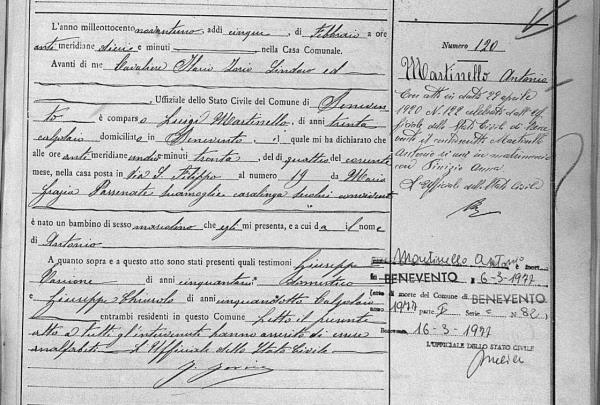 L'anno milleottocento novantuno, addì cinque, di Febbraio a ore
anti meridiane dieci e minuti, nella Casa Comunale.
Avanti di me Cavaliere Ilario Sindaco ed
Uffiziale dello Stato Civile del Comune di Beneven
to, è comparso Luigi Martinello, di anni trenta
calzolaio domiciliato in Benevento, il quale mi ha dichiarato
che alle ore anti meridiane undici e minuti trenta, del dì quattro del corrente
mese, nella casa posta in Via S. Filippo al numero 19 da Maria
Grazia sua moglie casalinga seco lui convivente
è nato un bambino di sesso mascolino che egli mi presenta, e a cui dà il nome
di Antonio
A quanto sopra e a questo atto sono stati presenti quali testimoni Giuseppe
di anni cinquanta domestico
e Giuseppe di anni cinquandotto Calzolaio
entrambi residenti in questo Comune. Letto il presente
atto a tutti gl'intervenuti hanno asserito di essere
analfabeti. L'Uffiziale dello Stato Civile
Numero 120
Martinello Antonio
Con atto in data 29 aprile
1920 N. 122 celebrato dall'uf
ficiale dello Stato Civile di Bene
vento il contendente Martinello
Antonio si unì in matrimonio
con Anna
L'Ufficiale dello Stato Civile
Martinello Antonio è mort
in BENEVENTO il 6-3-1977
di morte del Comune di BENEVENTO
1977 parte Serie N. 82
Benevento 16-3-1977
L'UFFICIALE DELLO STATO CIVILE